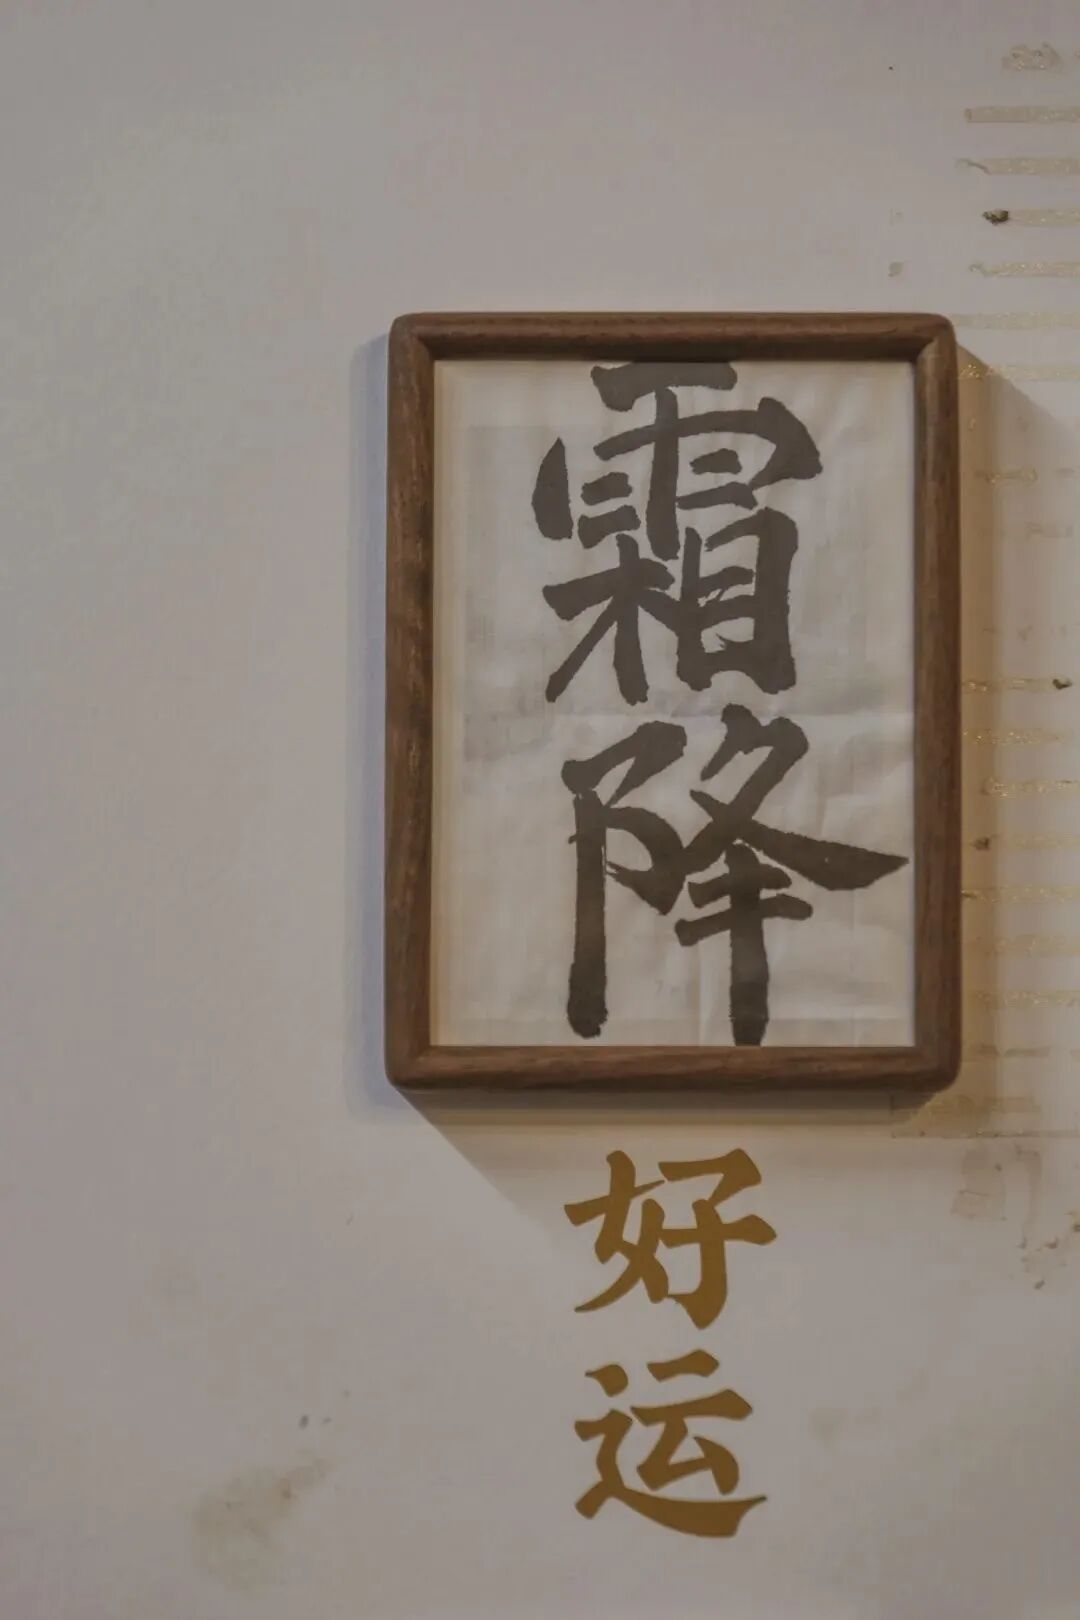 霜降
好运